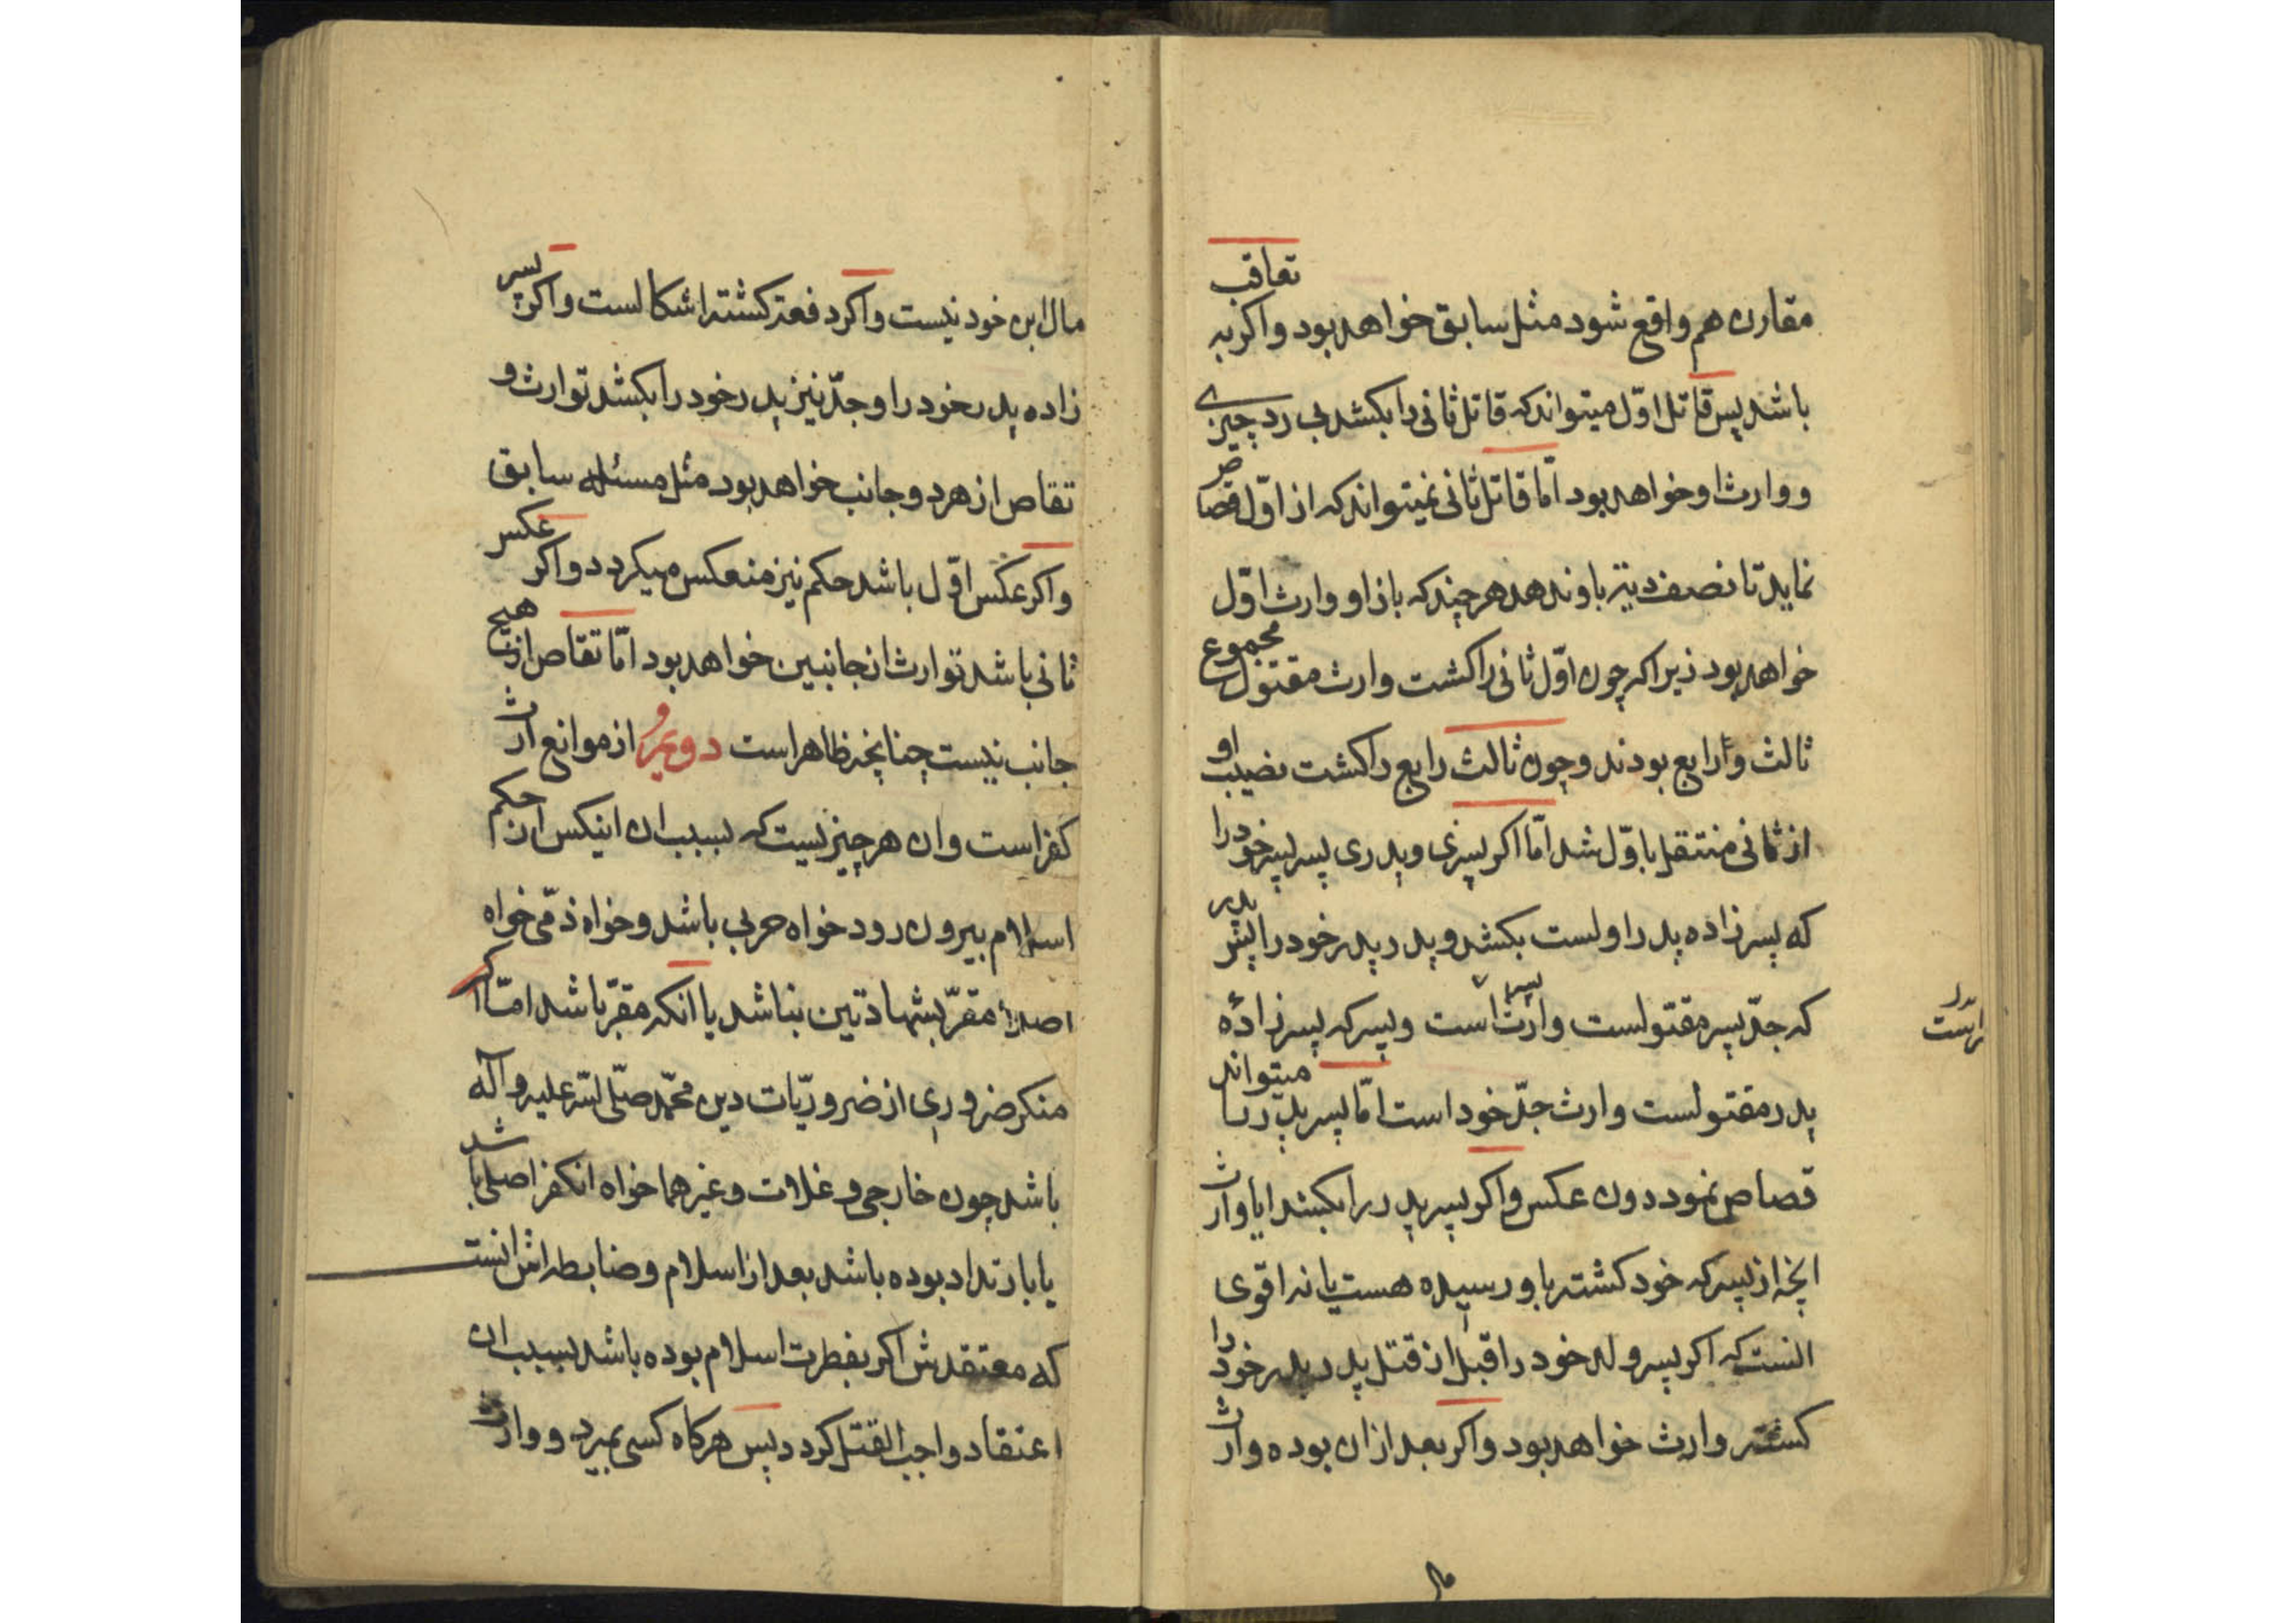 مقارن هم واقع شود مثل سابق خواهد بود و اكر به تعاقب
باشد پس قاتل اوّل ميتواند كه قاتل ثانى را بكشد بى رد چيزے
و وارث او خواهد بود امّا قاتل ثانى نميتواند كه از اوّل قصاص
نمايد تا نصف ديه باو ندهد هر چند كه باز او وارث اوّل
خواهد بود زيرا كه چون اوّل ثانى را كشت وارث مقتول مجموع
ثالث و رابع بودند و چون ثالث رابع را كشت نصيب او
از ثانى منتقل باوّل شد امّا اكر پسرى و پدرى پسر پسر خود را
كه پسرزاده پدر اوست بكشد و پدر پدر خود را پس پدر
كه جدّ پسر مقتولست وارث پسر است و پسر كه پسرزادهٔ
پدر مقتولست وارث جدّ خود است امّا پسر پدر را ميتواند
قصاص نمود دون عكس و اكر پسر پدر را بكشد ايا وارث
انچه از پسر كه خود كشته باو رسيده هست يا نه اقوى
انست كه اكر پسر ولد خود را قبل از قتل پدر پدر خود را
كشته وارث خواهد بود و اكر بعد از ان بوده وارث
مال ابن خود نيست و اكر دفعة كشته اشكالست و اكر پسر
زاده پدر خود را و جدّ نيز پدر خود را بكشد توارث و
تقاص از هر دو جانب خواهد بود مثل مسئله سابق
و اكر عكس اوّل باشد حكم نيز منعكس ميكردد و اكر عكس
ثانى باشد توارث از جانبين خواهد بود امّا تقاص از هيچ
جانب نيست چنانچه ظاهر است دويم از موانع ارث
كفر است و ان هر چيزيست كه بسبب ان اينكس از حكم
اسلام بيرون رود خواه حربى باشد و خواه ذمّى خواه
اصلا مقرّ بشهادتين نباشد يا انكه مقرّ باشد امّا اكر
منكر ضرورى از ضروريّات دين محمّد صلّى الله عليه و آله
باشد چون خارجى و غلات و غيرهما خواه انكفر اصلى باشد
يا بارتداد بوده باشد بعد از اسلام و ضابطه اش انست
كه معتقدش اكر بفطرت اسلام بوده باشد بسبب ان
اعتقاد واجب القتل كردد پس هركاه كسى بميرد و وارث